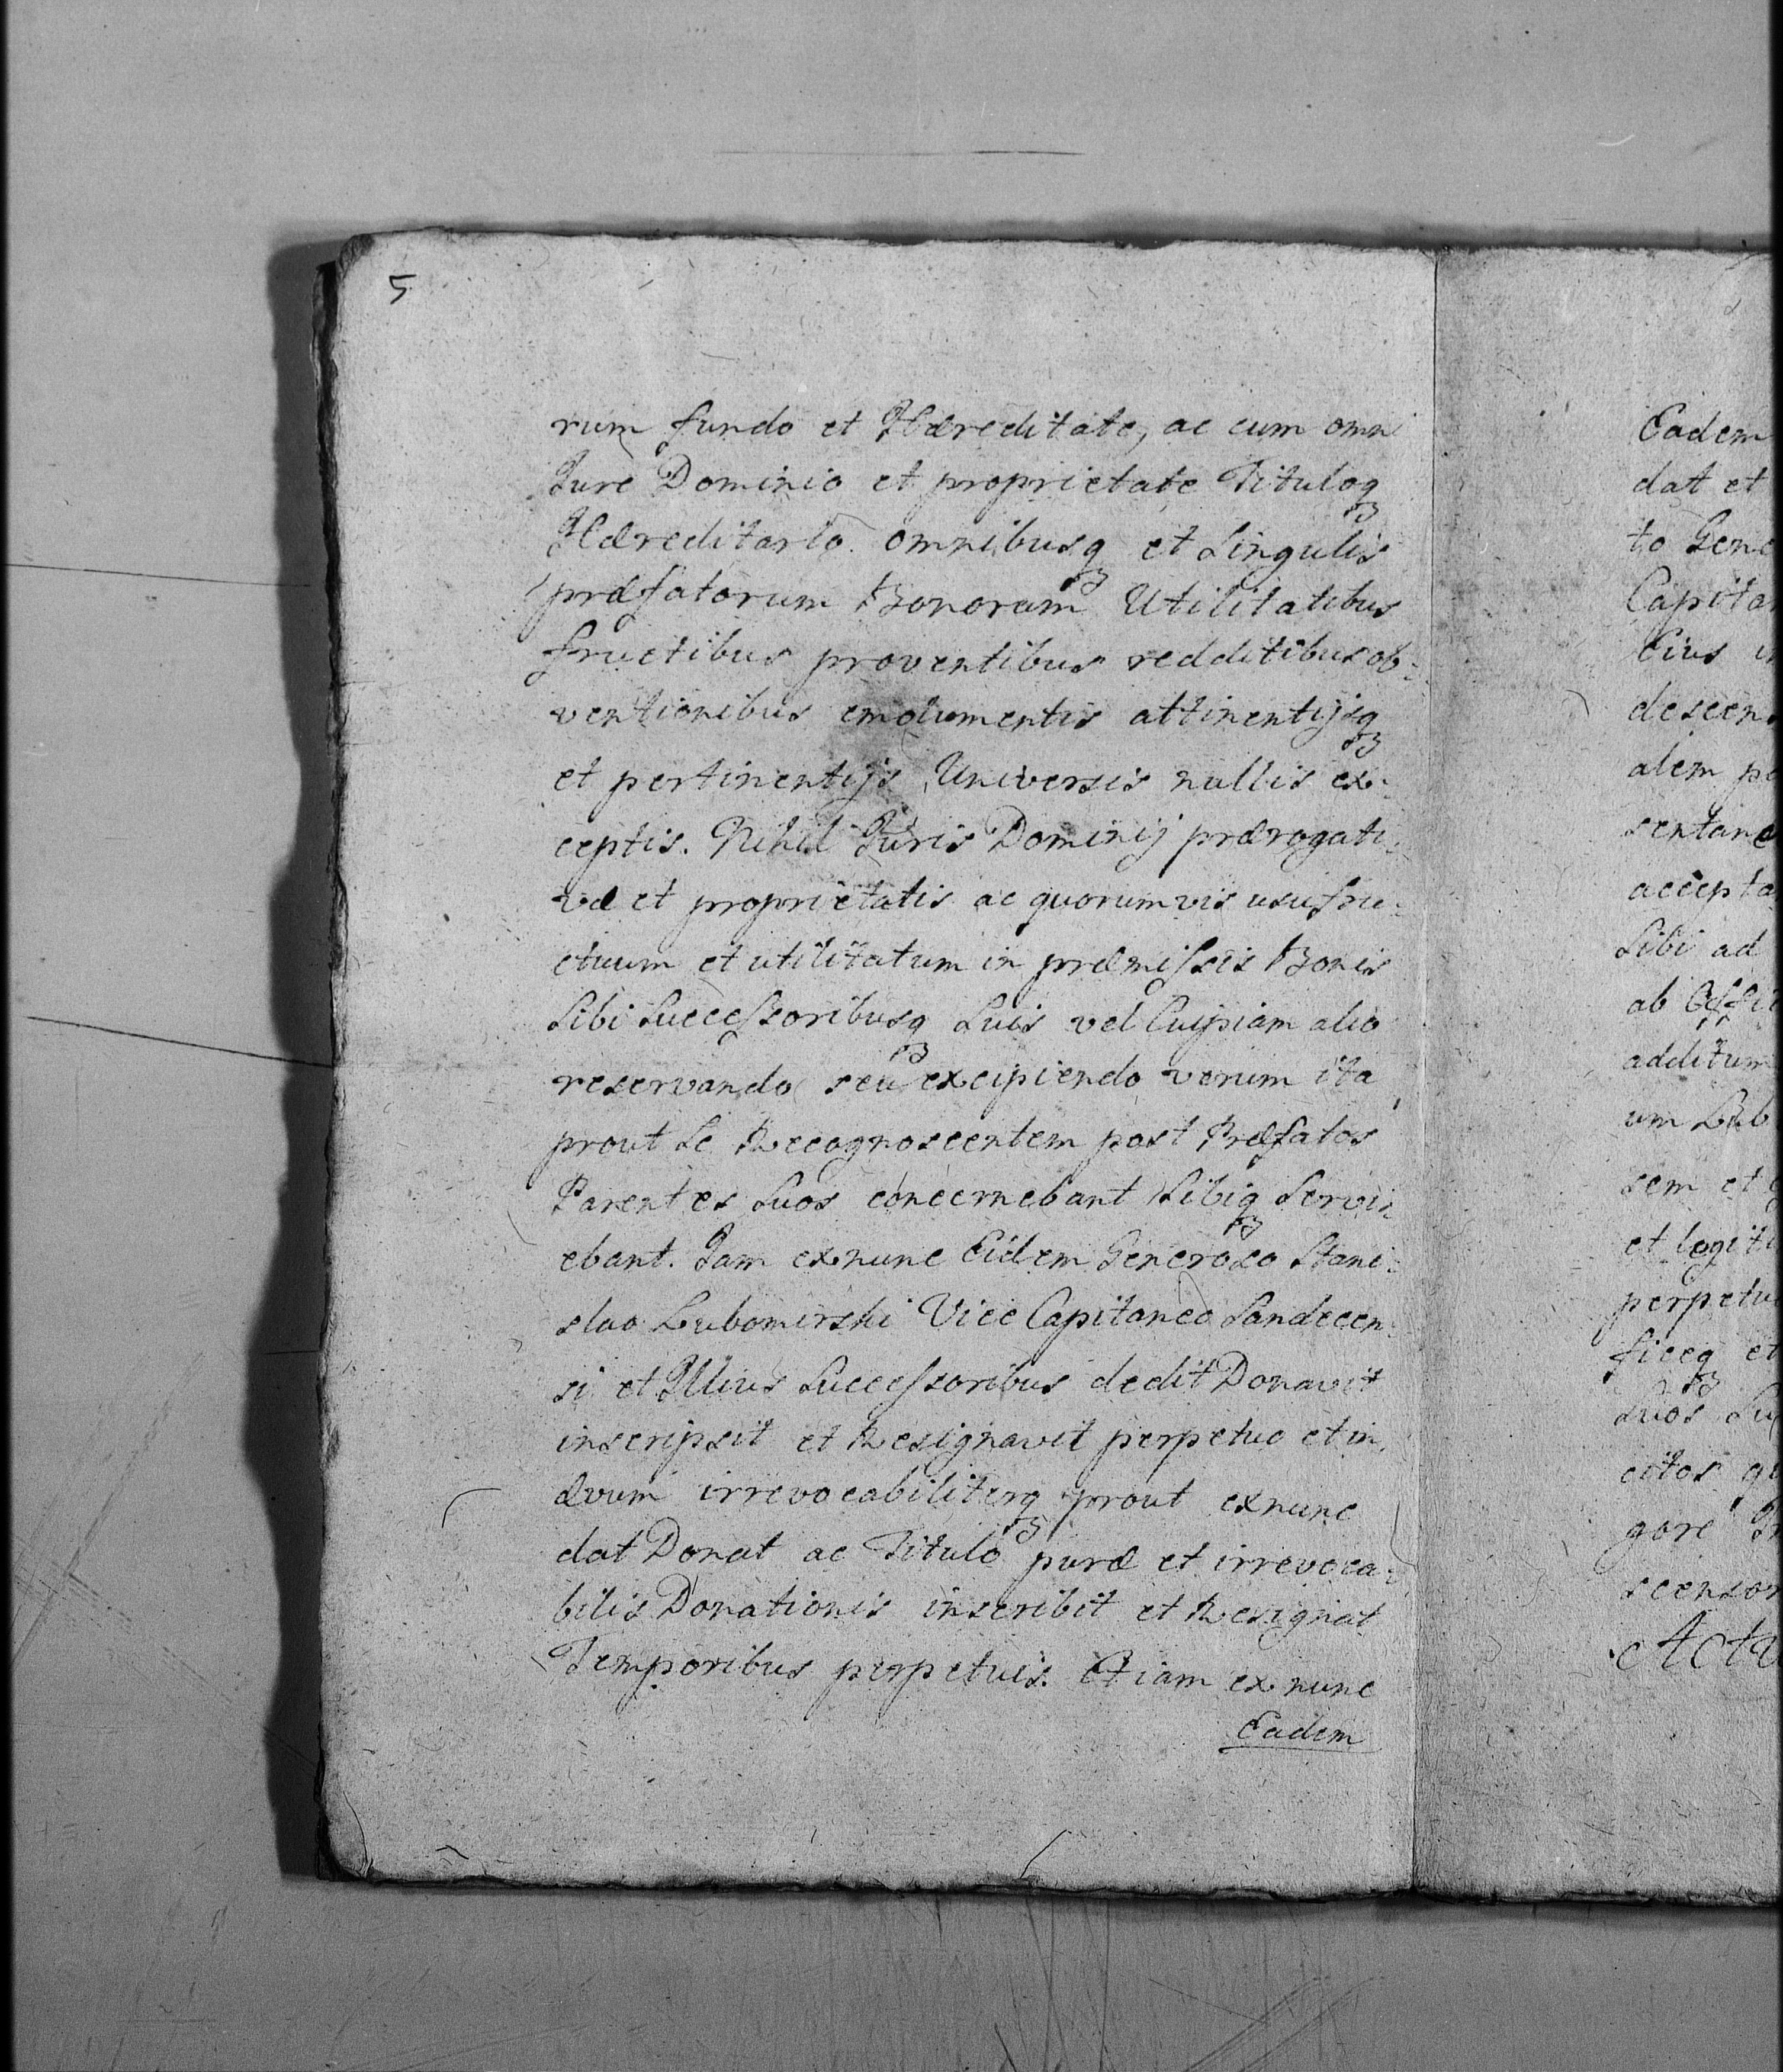 5
rum fundo et Hæreditate, ac cum omni
Jure Dominio et proprietate Tituloq3
Hæreditario omnibusq3 et Singulis
præfatorum Bonorum Utilitatibus
fructibus proventibus redditibus ob:
ventionibus emolumentis attinentijsq3
et pertinentijs Universis nullis ex:
ceptis. Nihil Juris Dominij prærogati:
væ et proprietatis ac quorumvis usufru:
ctuum et utilitatum in præmissis Bonis
Sibi Successoribusq3 Suis vel Cuipiam alio
reservando seu excipiendo verum ita
prout Se Recognoscentem post Præfatos
Parentes Suos concernebant Sibiq3 Servi:
ebant. Jam exnunc Eidem Generoso Stani:
slao Lubomirski Vice Capitaneo Sandecen:
si et Illius Successoribus dedit Donavit
inscripsit et Resignavit perpetuo et in
ævum irrevocabiliterq3 prout exnunc
dat Donat ac Titulo puræ et irrevoca:
bilis Donationis inscribit et Resignat
Temporibus perpetuis. Etiam ex nunc
Eadem
Eadem
dat et
to Gene
Capita
Eius
descen
alem
sentane
accepta
Sibi ad
ab
additum
um Lub
sem et
et legiti
perpetu
ficeq3 et
suos Su
citos
gore
scensor
Actu